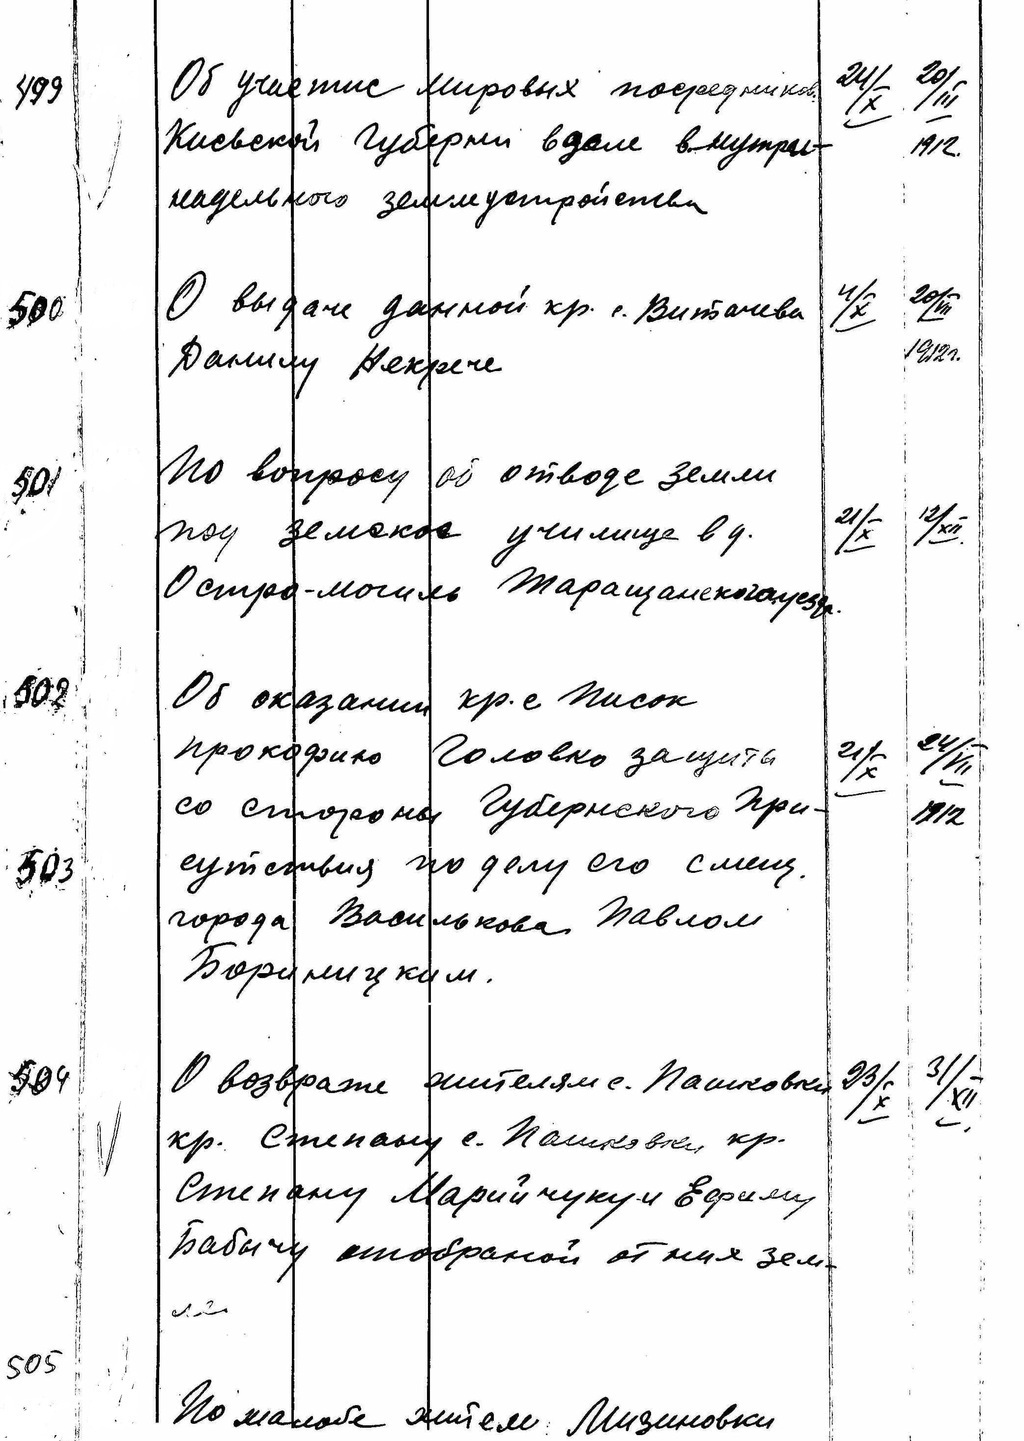 499 Об участие мировых посредников 24/X 20/III
Киевской Губернии в деле внутри- 1912.
надельного землеустройства
500 О выдаче данной кр. с. Витачева 4/X 20/III
Данилу Некрече 1912г.
501 По вопросу об отводе земли
под земское училище в д. 21/X 12/XII.
Остро-могиль Таращанского уезда.
502 Об оказании кр. с Писок
Прокофию Головко защиты 21/X 24/VII
со стороны Губернского При- 1912
503 сутствия по делу его с мещ.
города Василькова Павлом
Бориницким.
504 О возврате жителям с. Пашковки 23/X 31/XII.
кр. Степану с. Пашковки кр.
Степану Марийчуку и Ефиму
Бабычу отобраной от них зем-
ли
505
По жалобе жител. Мизиновки